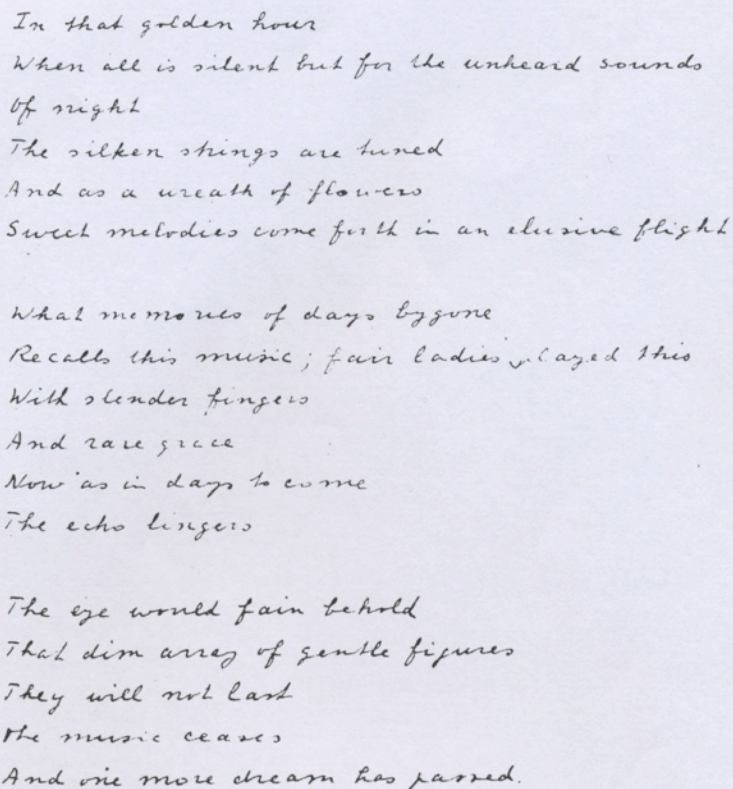 In that golden hour
When all is silent but for the unheard sounds
Of night
The silken strings are tuned
And as a wreath of flowers
Sweet melodies come forth in an elusive flight
What memories of days bygone
Recalls this music; fair ladies played this
With slender fingers
And rare grace
Now as in days to come
The echo lingers
The eye would fain behold
That dim array of gentle figures
They will not last
The music ceases
And one more dream has passed.